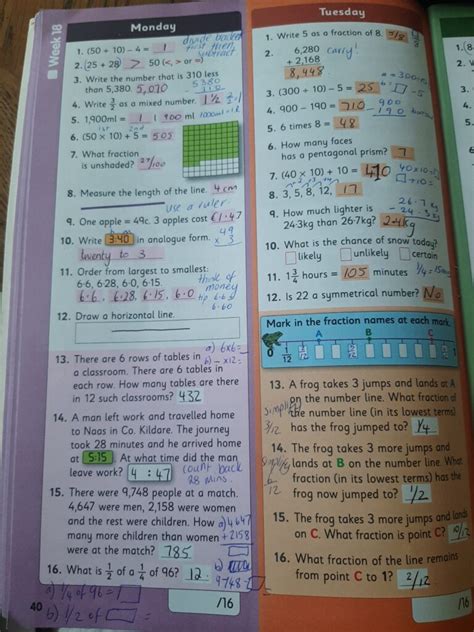 Week 18
Monday
divide brackets
first then
subtract
1. (50 ÷ 10) – 4 = 1
2. (25 + 28) > 50 (<, > or =)
3. Write the number that is 310 less
than 5,380. 5,070
4. Write 3/2 as a mixed number. 1 1/2
5. 1,900ml = 1 l 900 ml 1000ml = 1l
1st 2nd
6. (50 x 10) + 5 = 505
7. What fraction
is unshaded? /100
8. Measure the length of the line. 4cm
use a ruler
9. One apple = 49c. 3 apples cost €1.47
49
x 3
10. Write 3:40 in analogue form.
twenty to 3
11. Order from largest to smallest:
6·6, 6·28, 6·0, 6·15.
6.6, 6.28, 6.15, 6.0
think of
money
tip 6.60
12. Draw a horizontal line.
a) 6x6=
b) – x12=
13. There are 6 rows of tables in
a classroom. There are 6 tables in
each row. How many tables are there
in 12 such classrooms? 432
14. A man left work and travelled home
to Naas in Co. Kildare. The journey
took 28 minutes and he arrived home
at 5:15. At what time did the man
leave work? 4:47
count back
28 mins.
15. There were 9,748 people at a match.
4,647 were men, 2,158 were women
and the rest were children. How
many more children than women
were at the match? 785
a) 4647
+2158
b)
9748-
16. What is 1/2 of 1/4 of 96? 12
a) 1/4 of 96 =
b) 1/2 of
40
/16
Tuesday
1. Write 5 as a fraction of 8. 5/8
2. 6,280
+ 2,168
8,448
carry!
3. (300 ÷ 10) – 5 = 25
4. 900 – 190 = 710
900
-190
5. 6 times 8 = 48
6. How many faces
has a pentagonal prism? 7
7. (40 x 10) + 10 = 410
8. 3, 5, 8, 12, 17
9. How much lighter is
24·3kg than 26·7kg? 2.4kg
26.7kg
- 24.3kg
10. What is the chance of snow today?
likely unlikely certain
11. 1 3/4 hours = 105 minutes
12. Is 22 a symmetrical number? No
Mark in the fraction names at each mark.
A B C
0 1/12 1
13. A frog takes 3 jumps and lands at A
on the number line. What fraction of
the number line (in its lowest terms)
has the frog jumped to? 1/4
simplify
3/12
14. The frog takes 3 more jumps and
lands at B on the number line. What
fraction (in its lowest terms) has the
frog now jumped to? 1/2
simplify
6
12
15. The frog takes 3 more jumps and lands
on C. What fraction is point C? 10/12
16. What fraction of the line remains
from point C to 1? 2/12
/16